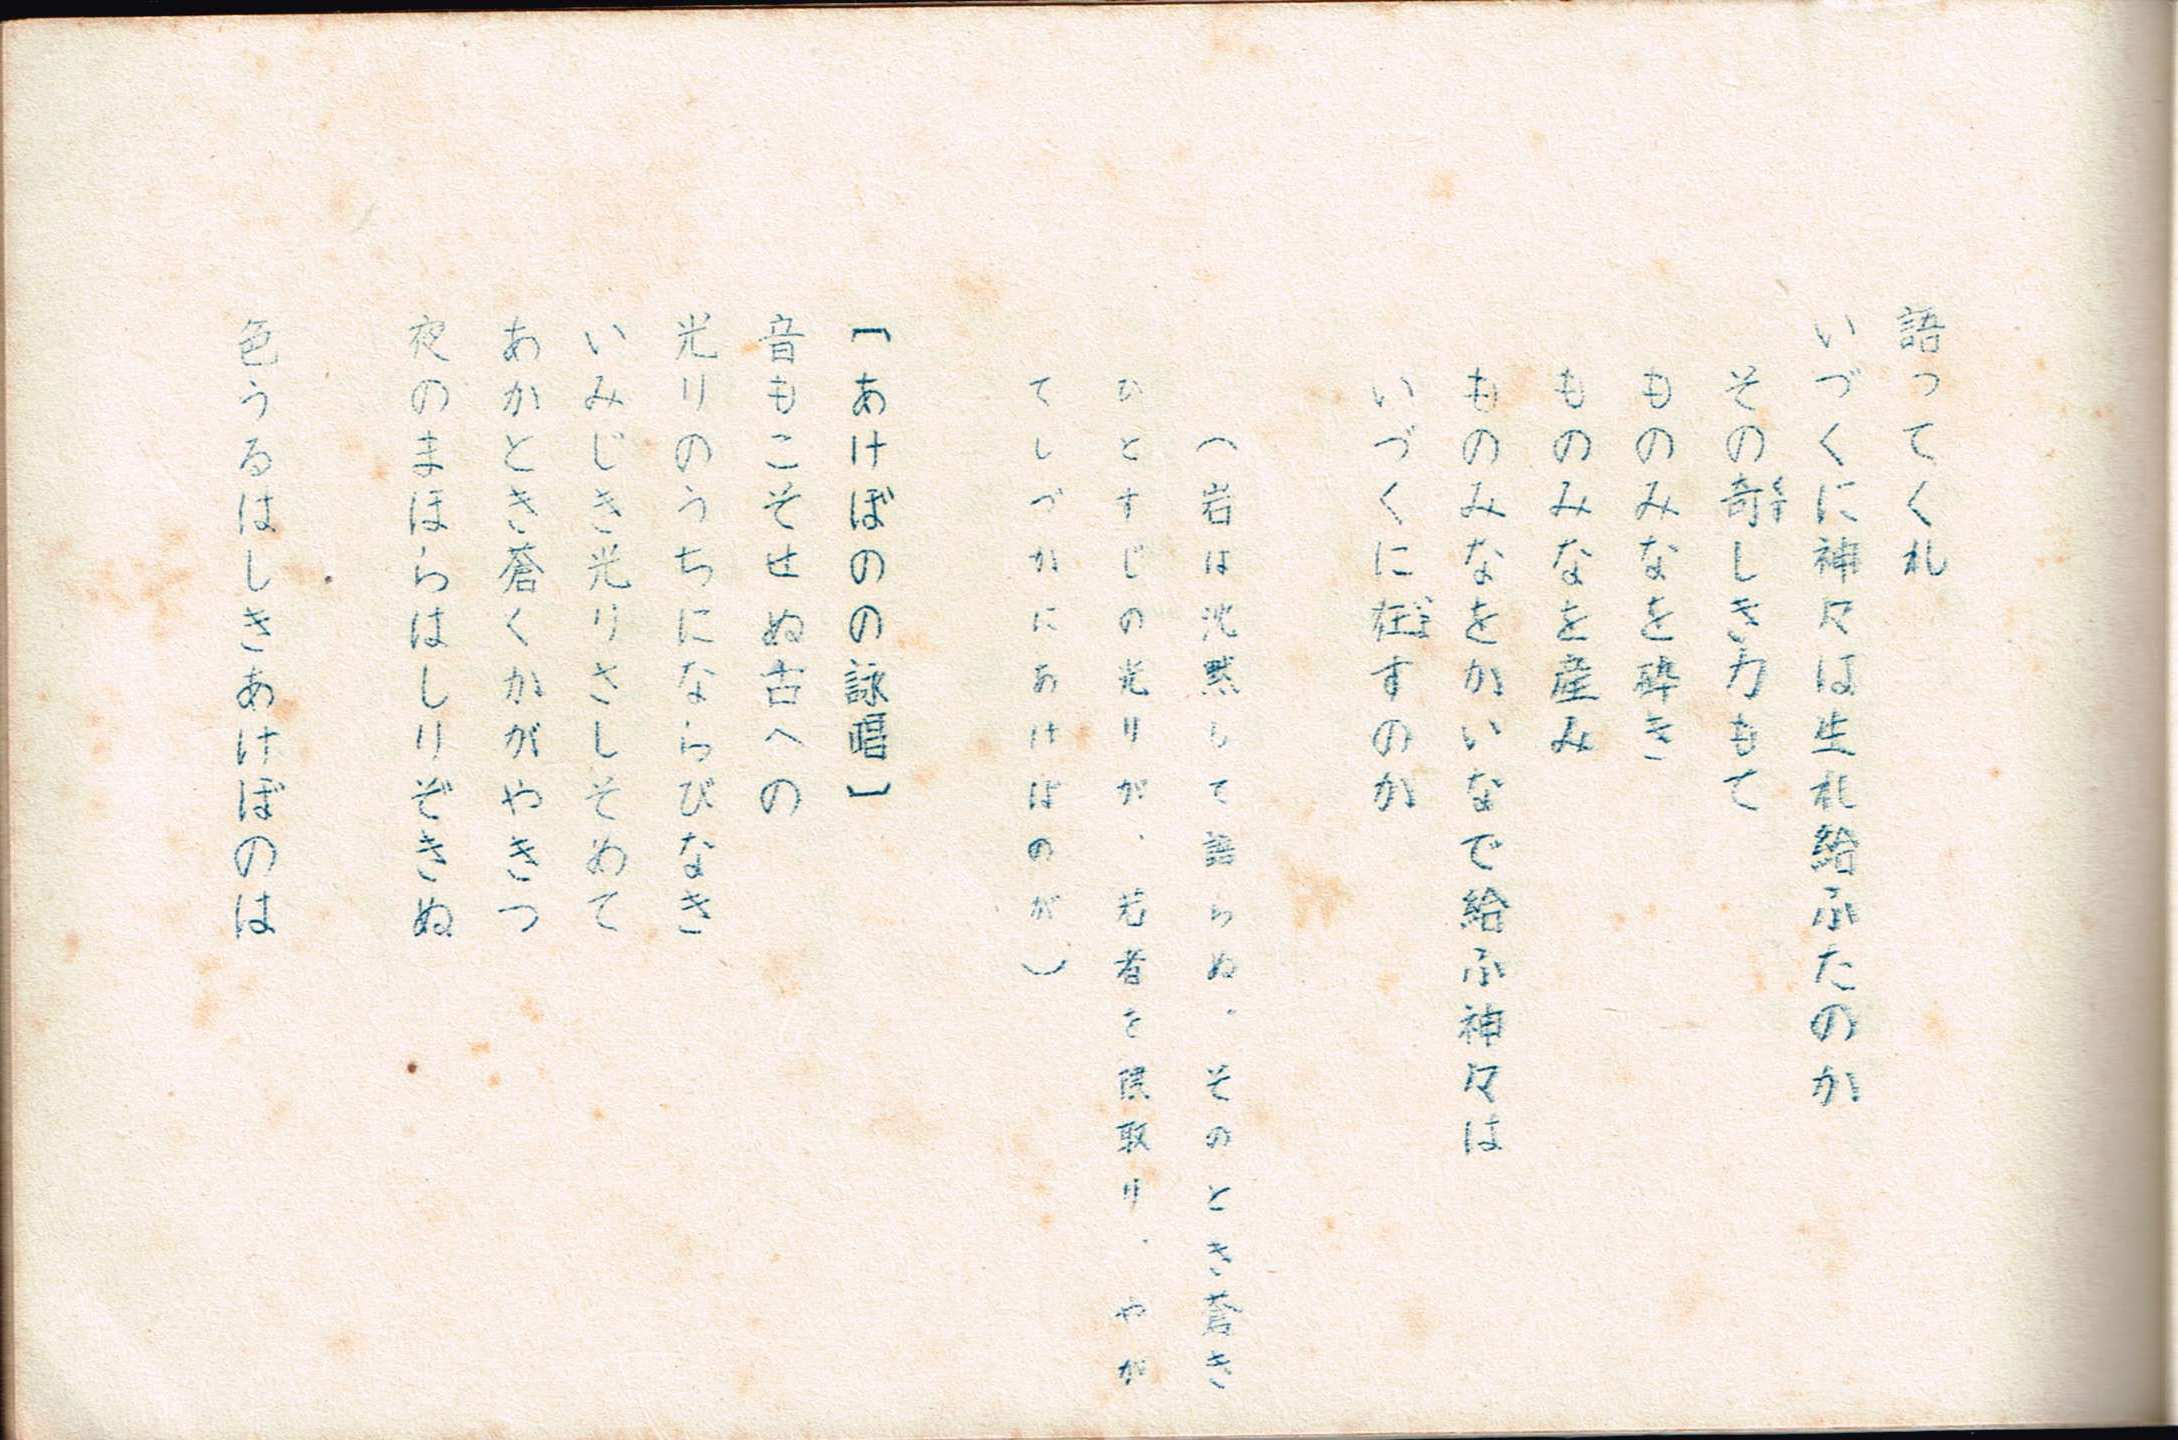 語ってくれ
いづくに神々は生れ給ふたのか
その奇しき力もて
ものみなを砕き
ものみなを産み
ものみなをかいなで給ふ神々は
いづくに在すのか
（岩は沈黙して語らぬ。そのとき蒼き
ひとすじの光りが、若者を隈取り、やが
てしづかにあけぼのが）
「あけぼのの詠唱」
音もこそせぬ古への
光りのうちにならびなき
いみじき光りさしそめて
あかとき蒼くかがやきつ
夜のまほらはしりぞきぬ
色うるはしきあけぼのは